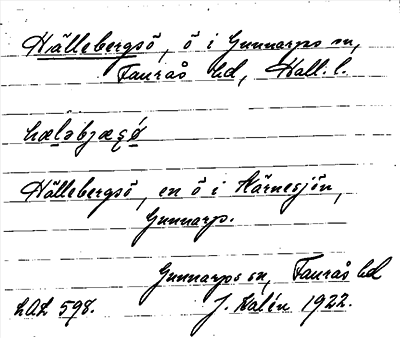 Hällebergsö, ö i Gunnarps sn,
Faurås hd, Hall. l.
hæləbjæʂö
Hällebergsö, en ö i Härnesjön,
Gunnarp.
Gunnarps sn, Faurås hd
LAL 598. J. Kalén 1922.